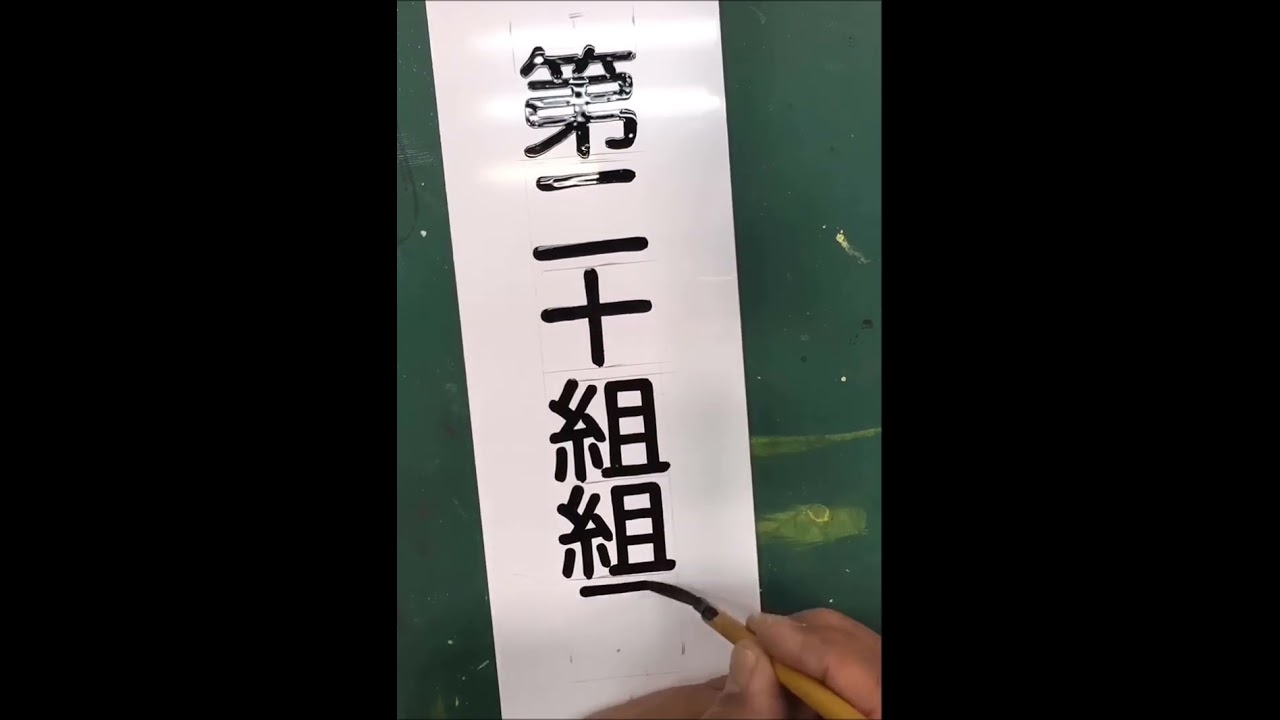 第二十組組